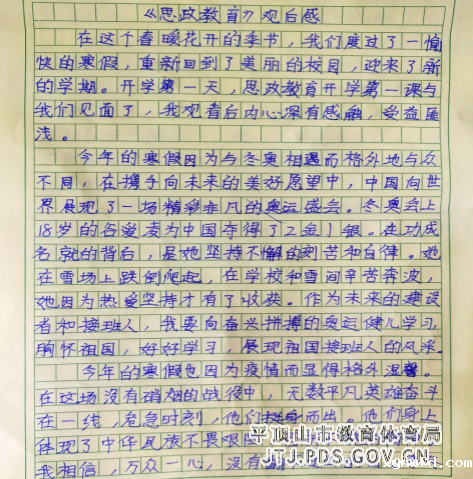 《思政教育》观后感
在这个春暖花开的季节，我们度过了一愉
快的寒假，重新回到了美丽的校园，迎来了新
的学期。开学第一天，思政教育开学第一课与
我们见面了，我观看后内心深有感触，受益匪
浅。
今年的寒假因为与冬奥相遇而格外地与众
不同，在携手向未来的美好愿望中，中国向世
界展现了一场精彩非凡的奥运盛会。冬奥会上
18岁的谷爱凌为中国夺得了2金1银。在功成
名就的背后，是她坚持不懈的刻苦和自律。她
在雪场上跌倒爬起，在学校和雪间辛苦奔波，
她因为热爱坚持才有了收获。作为未来的建设
者和接班人，我要向奋兴拼搏的奥运健儿学习，
胸怀祖国，好好学习，展现祖国接班人的风采。
今年的寒假也因为疫情而显得格外温馨。
在这场没有硝烟的战役中，无数平凡英雄奋斗
在一线，危急时刻，他们挺身而出。他们身上
体现了中华民族不畏艰
我相信，万众一心，没有
平顶山市教育体育局
JTJ.PDS.GOV.CN